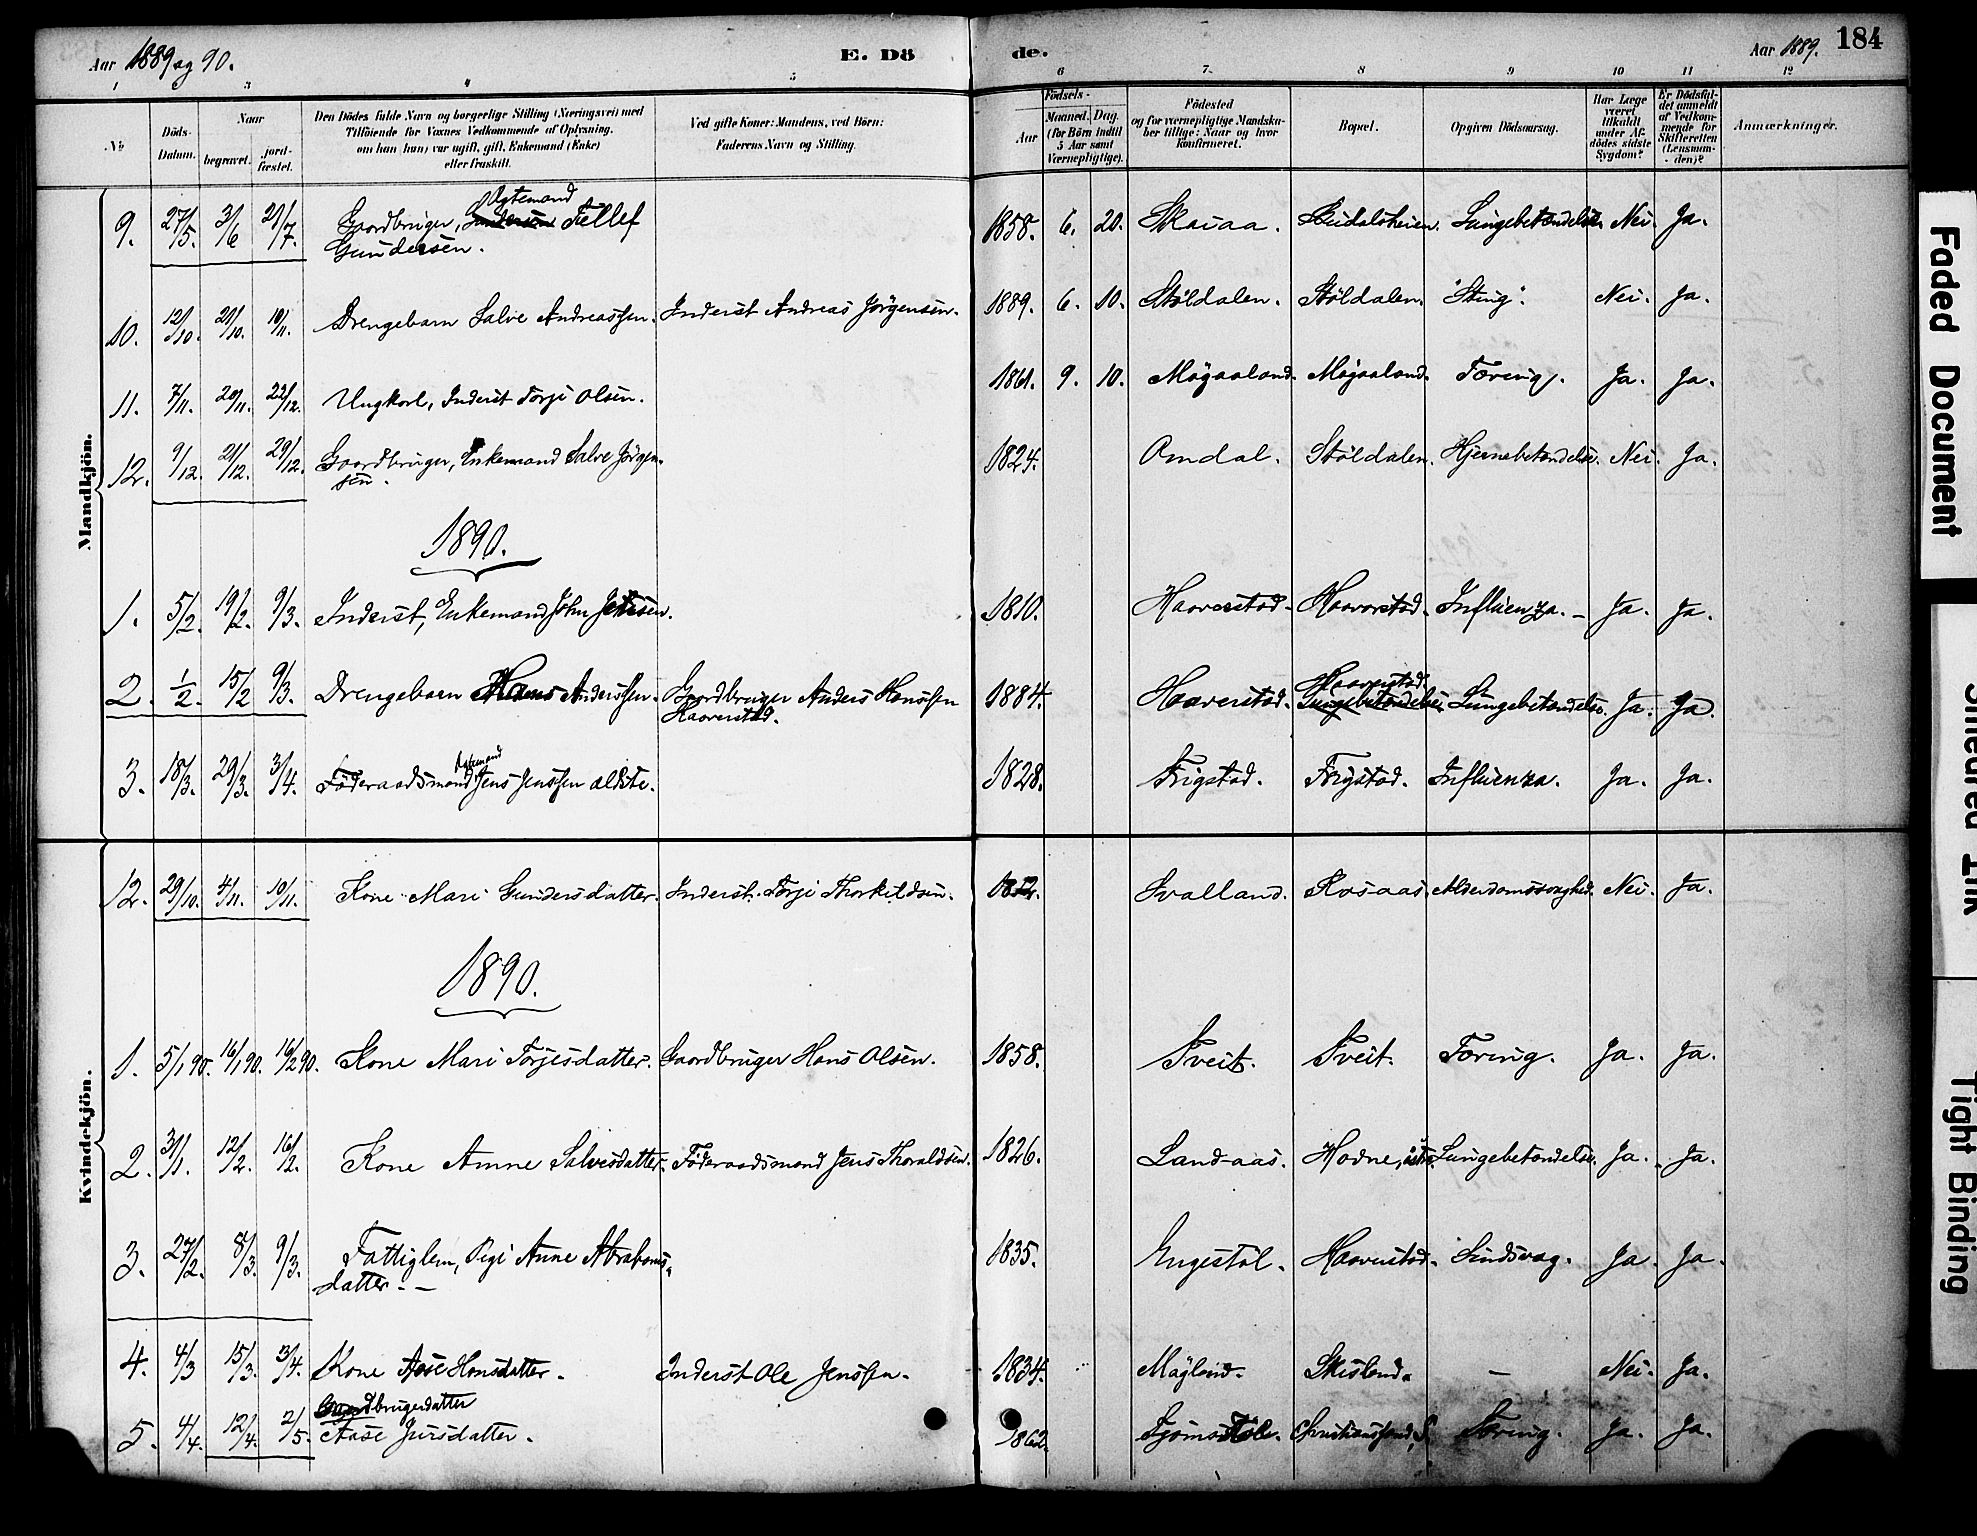 Aar 1889 og 90.
E. Dö
de.
Aar 1889.
184
1 3 4 5 6 7 8 9 10 11 12
No
Döds-Datum.
Naar
begravet.
jord-fæstet.
Den Dödes fulde Navn og borgerlige Stilling (Næringsvei) med
Tilföiende for Voxnes Vedkommende af Oplysning,
om han (hun) var ugift, gift, Enkemand (Enke)
eller fraskilt.
Ved gifte Koner: Mandens, ved Börn:
Faderens Navn og Stilling.
Födsels-
Aar
Maaned. Dag.
(for Börn indtil
5 Aar samt
Værnepligtige).
Födested
og for værnepligtige Mandska-
ber tillige: Naar og hvor
konfirmeret.
Bopæl.
Opgiven Dödsaarsag.
Har Læge
været
tilkaldt
under Af-
dödes sidste
Sygdom?
Er Dödsfal-
det anmeldt
af Vedkom-
mende for
Skifteretten
(Lensman-
den)?
Anmærkninger.
Mandkjön.
9. 27/5. 3/6 21/7. Gaardbruger, Ægtemand Tellef
Gundersen. 1858. 6. 20. Skaiaa. Lungebetændelse. Nei. Ja.
10. 12/10. 21/10. 10/11. Drengebarn Salve Andreassen. Inderst Andreas Jörgensen. 1889. 6. 10. Stöldalen. Stöldalen. "Sting". Nei. Ja.
11. 7/11. 20/11. 22/12. Ungkarl, Inderst Torje Olsen. 1861. 9. 10. Mögaaland. Mögaaland. Tæring. Ja. Ja.
12. 9/12. 21/12. 29/12. Gaardbruger, Enkemand Salve Jörgen-
sen. 1824. Omdal. Stöldalen. Hjernebetændelse. Nei. Ja.
1890.
1. 5/2. 19/2. 9/3. Inderst, Enkemand John Jensen. 1810. Haaverstad. Haaverstad. Influenza. Ja. Ja.
2. 1/2. 15/2 9/3. Drengebarn Hans Anderssen. Gaardbruger Anders Hanssen
Haaverstad. 1884. Haaverstad. Haaverstad Lungebetændelse. Lungebetændelse. Ja. Ja.
3. 18/3. 29/3. 3/4. Föderaadsmand Ægtemand Jens Jenssen ældste. 1828. Frigstad. Frigstad. Influenza. Ja. Ja.
Kvindekjön.
12. 29/10. 4/11. 10/11. Kone Mari Gundersdatter. Inderst. Torje Thorkildsen. Svalland. Rosaas. Alderdomssvaghed. Nei. Ja.
1890.
1. 5/1 90. 16/1 90. 16/2 90. Kone Mari Torjesdatter. Gaardbruger Hans Olsen. 1858. Tveit. Tveit. Tæring. Ja. Ja.
2. 31/1. 12/2. 16/2. Kone Anne Salvesdatter. Föderaadsmand Jens Thoraldsen. 1826. Land-aas. Hodne, Lungebetændelse. Ja. Ja.
3. 27/2. 8/3. 9/3. Fattiglem, Pige Anne Abrahams-
datter. 1835. Engestöl. Haaverstad. Sindsvag. Ja. Ja.
4. 4/3 15/3. 3/4. Kone Aase Hansdatter. Inderst Ole Jenssen. 1834. Mögland. Skisland. — Nei. Ja.
5. 4/4. 12/4. 2/5. Gaardbrugerdatter
Aase Jensdatter. 1862. Christianssand, S. Tæring. Ja. Ja.
Faded Document
Smeared Ink
Tight Binding